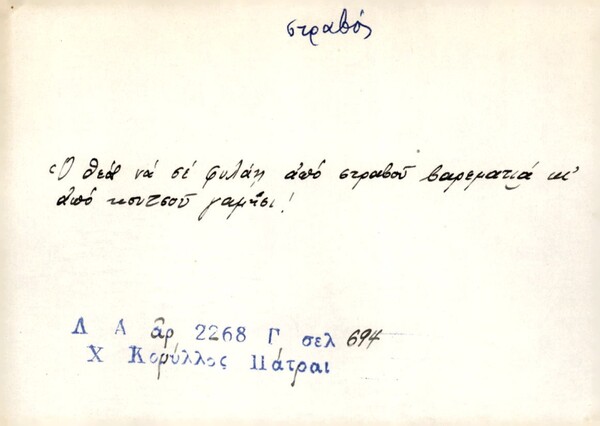 στραβός
Ὁ θεὸς νά σέ φυλάῃ ἀπό στραβοῦ βαρεματιά κι'
ἀπό κουτσοῦ γαμήσι!
Λ Α ἀρ 2268 Γ σελ 694
Χ Κορύλλος Πάτραι